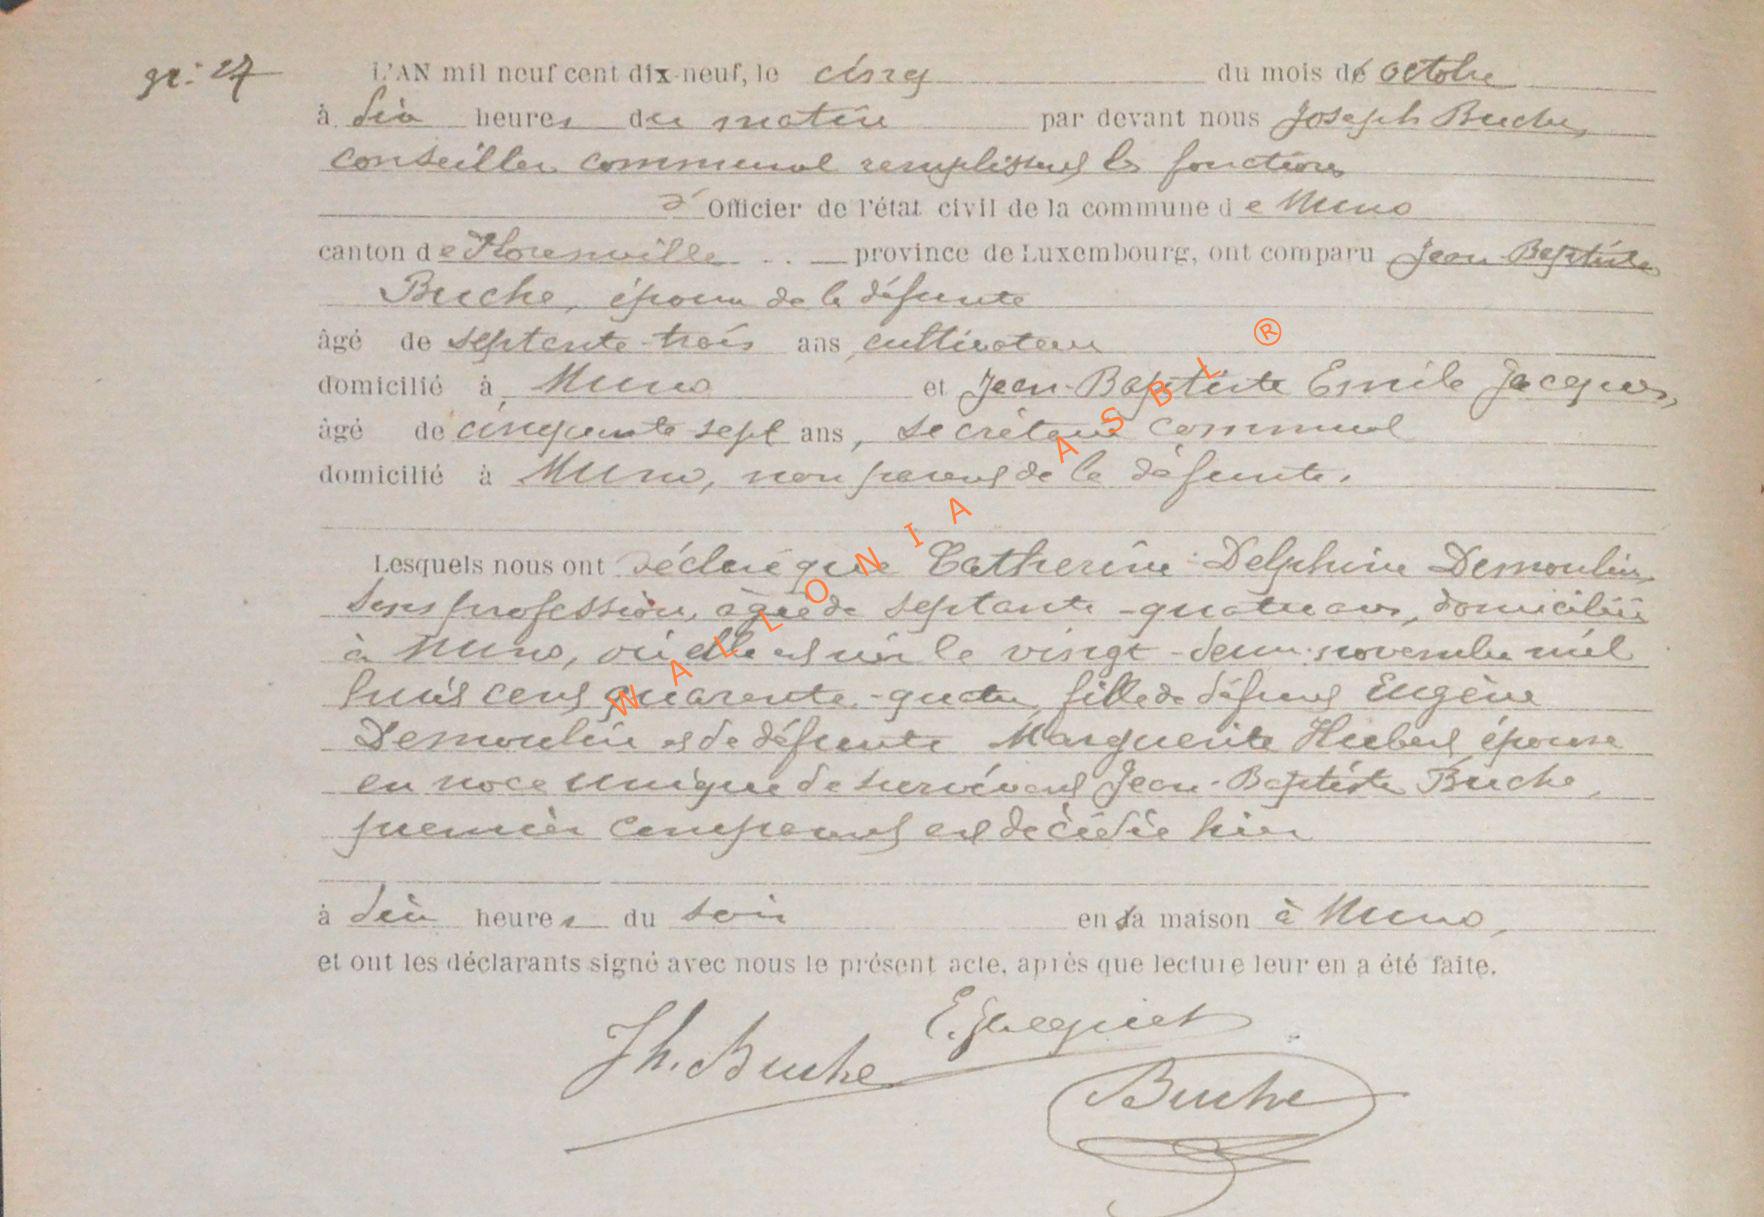 n°: 27
L'AN mil neuf cent dix-neuf, le cinq du mois de octobre
à dix heures du matin par devant nous Joseph Buche,
conseiller communal remplissant les fonctions
d'Officier de l'état civil de la commune de Muno
canton de Florenville province de Luxembourg, ont comparu Jean-Baptiste
Buche, époux de la défunte
âgé de septante-trois ans cultivateur
domicilié à Muno et Jean-Baptiste Emile Jacques,
âgé de cinquante sept ans, secrétaire communal
domicilié à Muno, non parent de la défunte.
Lesquels nous ont déclaré que Catherine Delphine Demoulin,
sans profession, âgée de septante-quatre ans, domiciliée
à Muno, où elle est née le vingt-deux novembre mil
huit cent quarante-quatre, fille de défunt Eugène
Demoulin et de défunte Marguerite Hubert, épouse
en noce unique de survivant Jean-Baptiste Buche,
premier comparant est décédée hier
à dix heures du soir en sa maison à Muno,
et ont les déclarants signé avec nous le présent acte, après que lecture leur en a été faite.
E. Jacques
Jh. Buche
Buche
WALLONIA ASBL ®